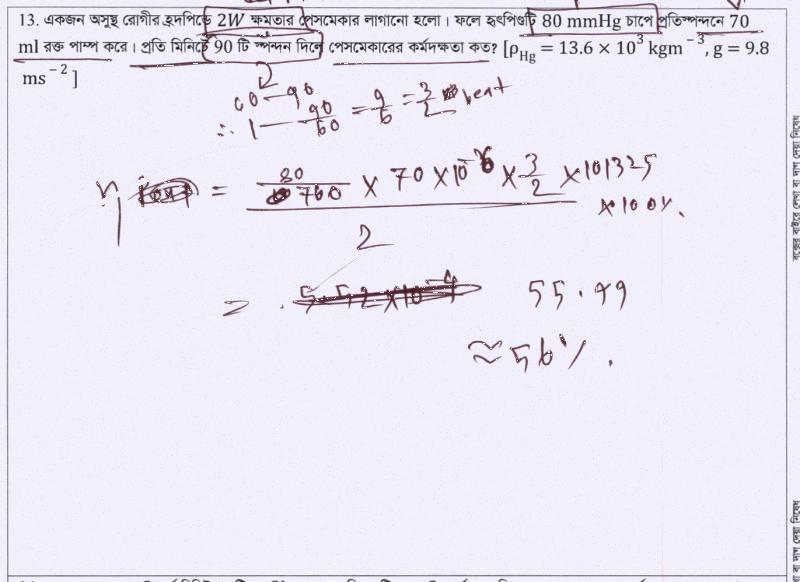 13. একজন অসুস্থ রোগীর হৃদপিন্ডে 2W ক্ষমতার পেসমেকার লাগানো হলো। ফলে হৃৎপিণ্ডটি 80 mmHg চাপে প্রতিস্পন্দনে 70
ml রক্ত পাম্প করে। প্রতি মিনিটে 90 টি স্পন্দন দিলে পেসমেকারের কর্মদক্ষতা কত? [ρHg = 13.6 × 10³ kgm⁻³, g = 9.8
ms⁻²]
60 — 90
∴ 1 — 90/60 = 9/6 = 3/2 beat
η = (80/760 × 70 × 10⁻⁶ × 3/2 × 101325)/2 × 100%
= 55.99
≈ 56%.